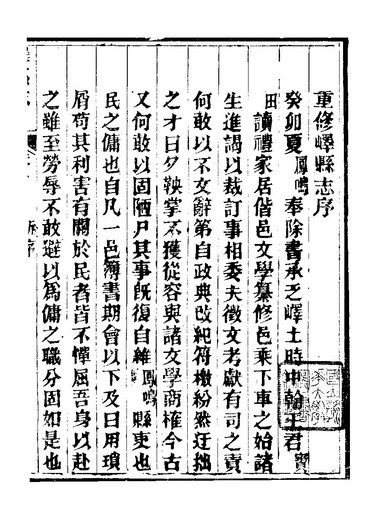 重修嶧縣志序
癸卯夏鳳鳴奉除書承乏嶧土時中翰王君寶
田讀禮家居偕邑文學纂修邑乘下車之始諸
生進謁以裁訂事相委夫徵文考獻有司之責
何敢以不文辭第自政典改紀符檄紛然迂拙
之才日夕鞅掌不獲從容與諸文學商榷今古
又何敢以固陋尸其事旣復自維鳳鳴縣吏也
民之傭也自凡一邑簿書期會以下及日用瑣
屑苟其利害有關於民者皆不憚屈吾身以赴
之雖至勞辱不敢避以爲傭之職分固如是也
序